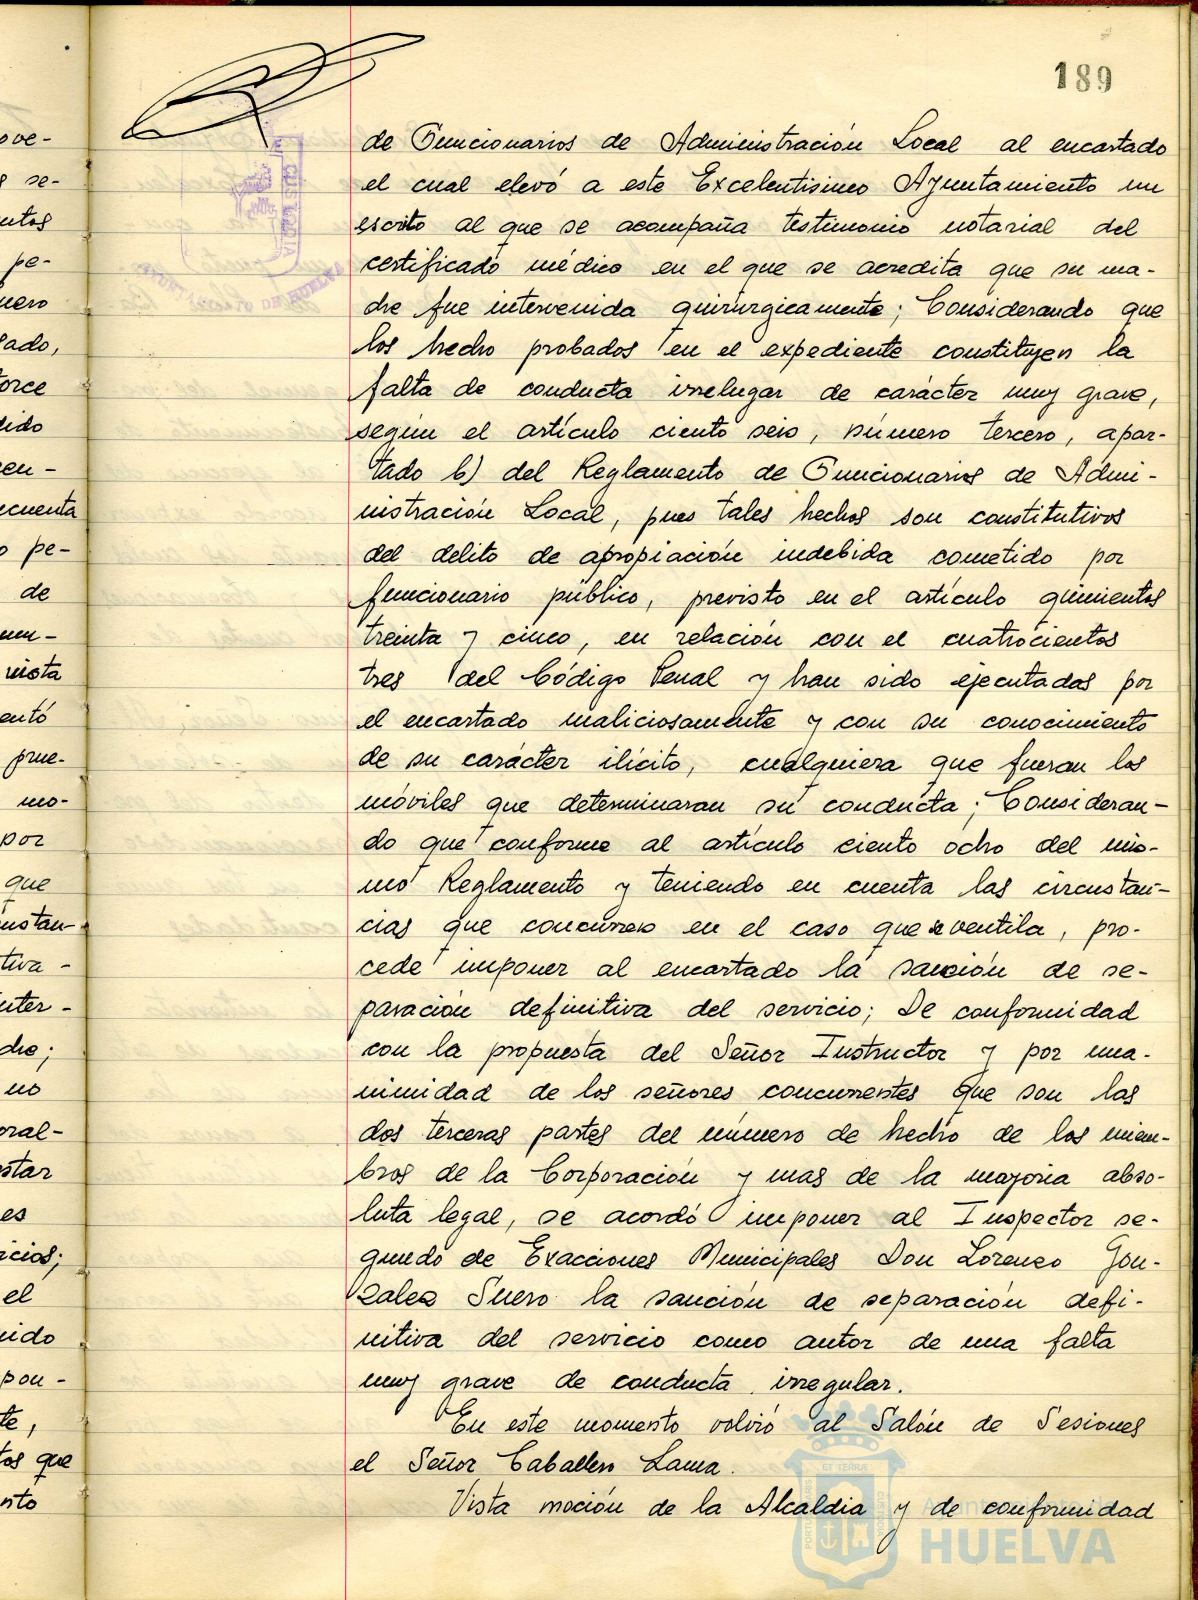 189
de Funcionarios de Administración Local al encartado
el cual elevó a este Excelentisimo Ayuntamiento un
escrito al que se acompaña testimonio notarial del
certificado médico en el que se acredita que su ma-
dre fue intervenida quirurgicamente; Considerando que
los hecho probados en el expediente constituyen la
falta de conducta irrelugar de carácter muy grave,
según el artículo ciento seis, número tercero, apar-
tado b) del Reglamento de Funcionarios de Admi-
nistración Local, pues tales hechos son constitutivos
del delito de apropiación indebida cometido por
funcionario público, previsto en el artículo quinientos
treinta y cinco, en relación con el cuatrocientos
tres del Código Penal y han sido ejecutadas por
el encartado maliciosamente y con su conocimiento
de su carácter ilícito, cualquiera que fueran los
móviles que determinaran su conducta; Consideran-
do que conforme al artículo ciento ocho del mis-
mo Reglamento y teniendo en cuenta las circustan-
cias que concurren en el caso que se ventila, pro-
cede imponer al encartado la sanción de se-
paración definitiva del servicio; De conformidad
con la propuesta del Señor Instructor y por una-
nimidad de los señores concurrentes que son las
dos terceras partes del número de hecho de los miem-
bros de la Corporación y mas de la mayoria abso-
luta legal, se acordó imponer al Inspector se-
gundo de Exacciones Municipales Don Lorenzo Gon-
zalez Suero la sanción de separación defi-
nitiva del servicio como autor de una falta
muy grave de conducta irregular.
En este momento volvió al Salón de Sesiones
el Señor Caballero Lama.
Vista moción de la Alcaldia y de conformidad
HUELVA
ove-
se-
pe-
ado,
orce
dido
cuenta
pe-
de
vista
entó
prue-
mo-
por
que
ustan-
tiva-
nter-
dre;
no
oral-
star
es
icios;
el
pon-
te,
que
AYUNTAMIENTO DE HUELVA